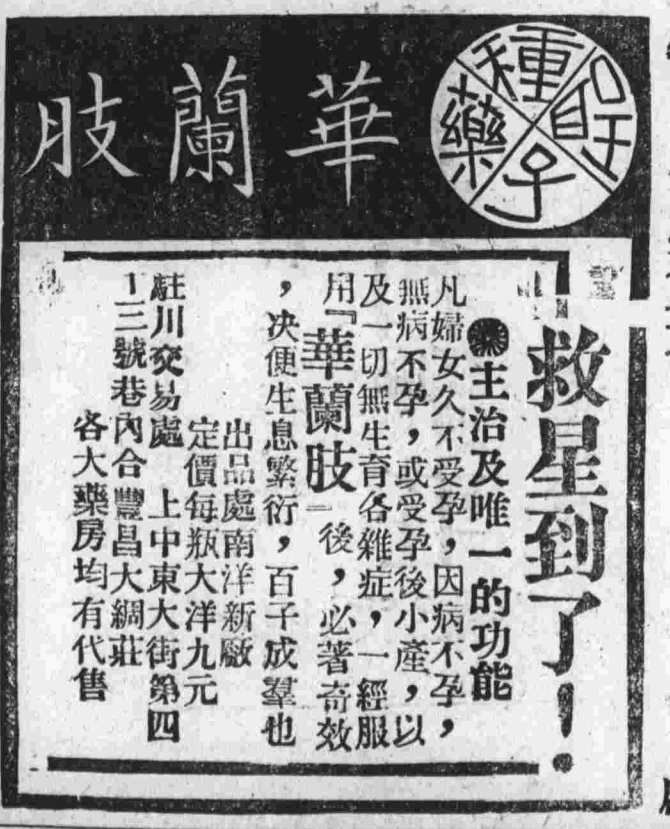 種子聖藥
華蘭肢
救星到了!
主治及唯一的功能
凡婦女久不受孕,因病不孕,
無病不孕,或受孕後小產,以
及一切無生育各雜症,一經服
用『華蘭肢』後,必著奇效
,決便生息繁衍,百子成羣也
出品處南洋新廠
定價每瓶大洋九元
駐川交易處 上中東大街第四
十三號巷內合豐昌大綢莊
各大藥房均有代售